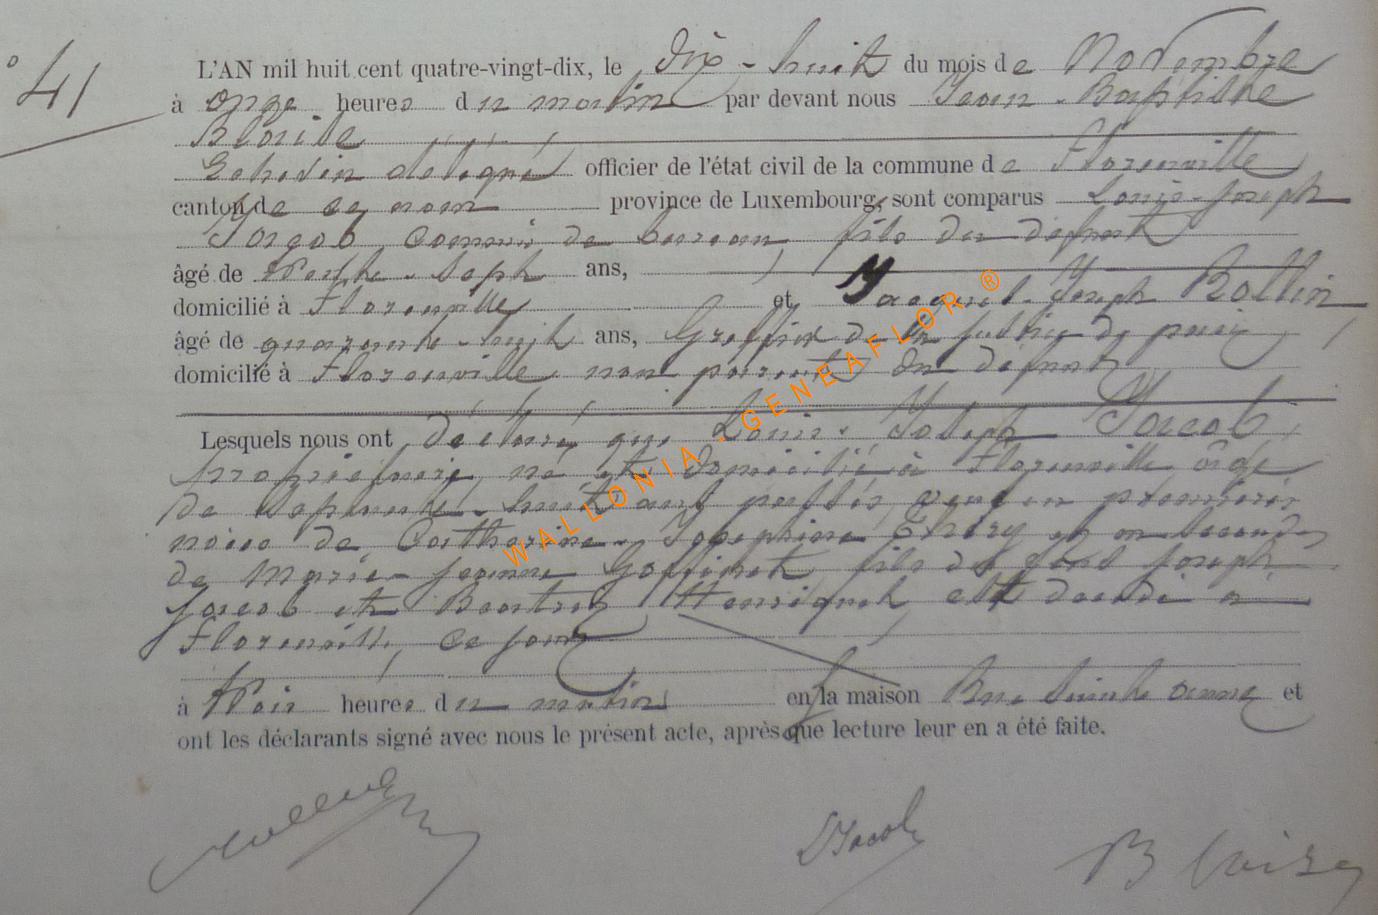 ° 41
L'AN mil huit cent quatre-vingt-dix, le dix-huit du mois de Novembre
à onze heures du matin par devant nous Jean-Baptiste
Blaise
Echevin délégué officier de l'état civil de la commune de Florenville
canton de ce nom province de Luxembourg, sont comparus Louis-Joseph
Jacob, commis de bureau, fils du défunt
âgé de trente-sept ans,
domicilié à Florenville et Jacques-Joseph Rollin
âgé de quarante-huit ans, Greffier de la justice de paix
domicilié à Florenville non parent du défunt
Lesquels nous ont déclaré que Louis-Joseph Jacob,
propriétaire, né et domicilié à Florenville âgé
de septante-huit ans passés, veuf en premières
noces de Catherine-Josephine Thiry et en secondes
de Marie-Jeanne Goffinet fils de feus Joseph
Jacob et Beatrix Henriquet est décédé à
Florenville, ce jour
à trois heures du matin en la maison Rue Sainte anne et
ont les déclarants signé avec nous le présent acte, après que lecture leur en a été faite.
Rollin LJacob Blaise
WALLONIA - GENEAFLOR ®